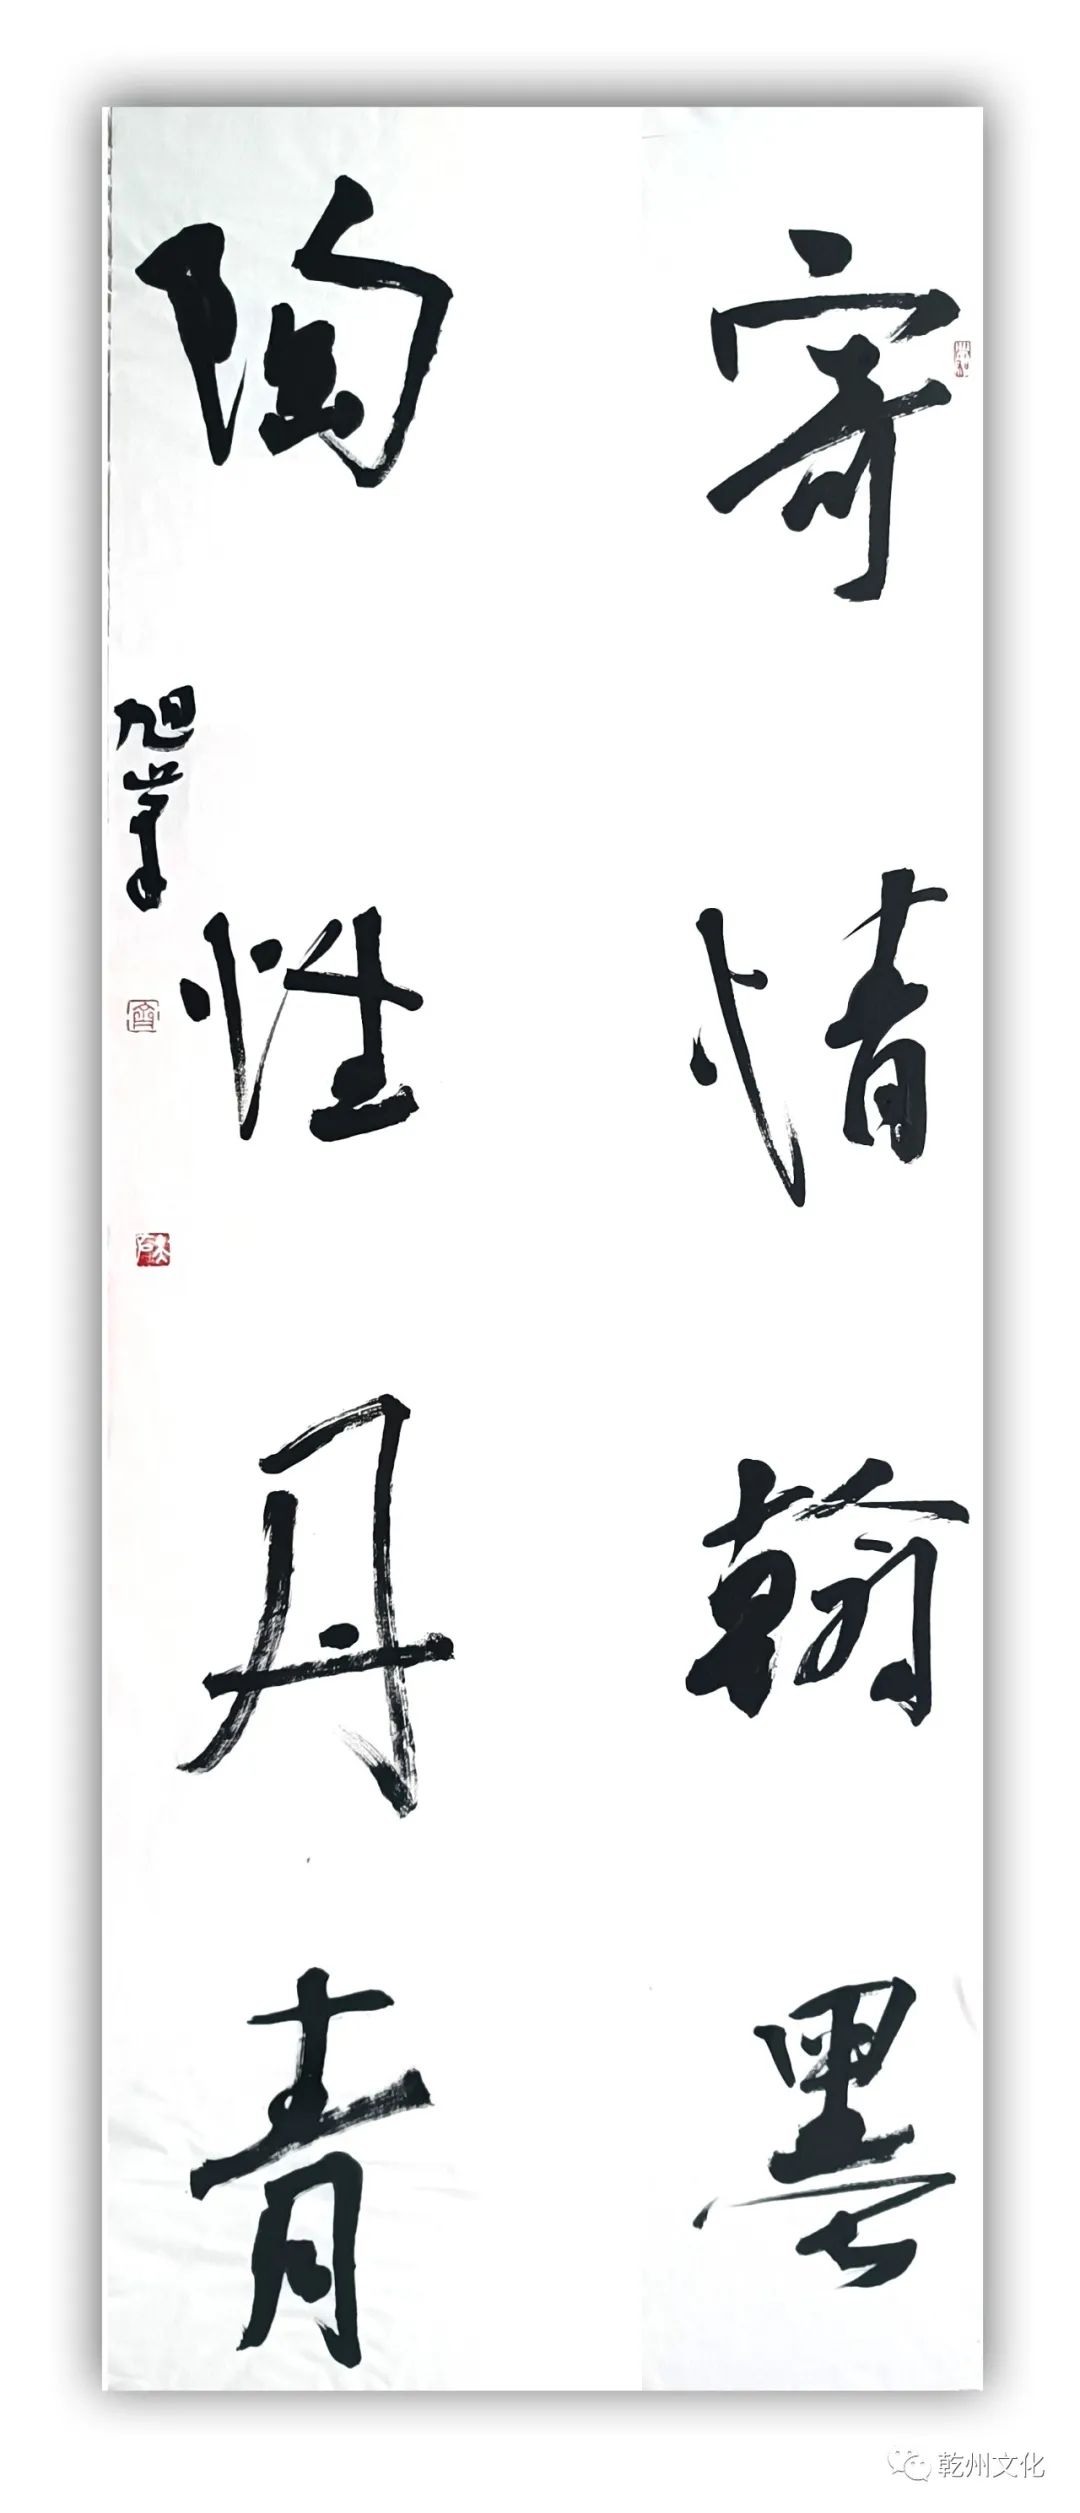 寄情翰墨
陶性丹青
旭
乾州文化